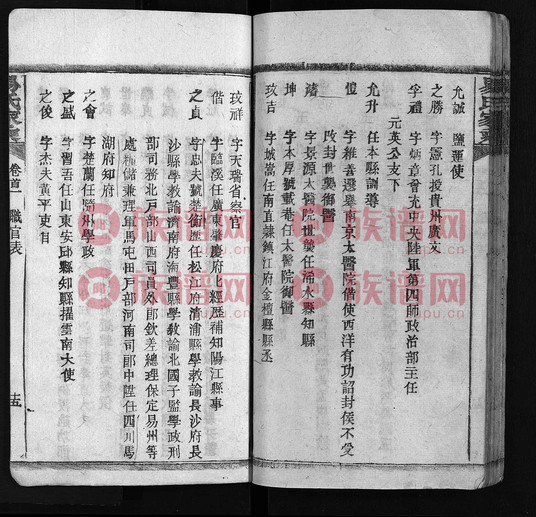 允誠 鹽運使
之勝 字憲孔授貴州廣文
孚禮 字炳章曾充中央陸軍第四師政治部主任
元英公支下
允升 任本縣訓導
愷 字雅善選舉南京太醫院偕使西洋有功詔封侯不受
改封世襲御醫
濤 字景源太醫院世襲任涌水縣知縣
坤 字本厚號載菴任太醫院御醫
玫吉 字城嵩任南直隸鎮江府金壇縣縣丞
玫祥 字天瑞省祭官
偕 字臨溪任廣東肇慶府北經歷補知陽江縣事
之貞 字忠夫號楚衡歷任松江府清浦縣學教諭長沙府長
沙縣學教諭濟南府海豐縣學教諭北國子監學政刑
部司務北戶部山西司員外郎欽差總理保定易州等
處糧儲兼理軍馬屯田戶部河南司郎中陞任四川馬
湖府知府
之會 字楚蘭任隨州學政
之盛 字習吾任山東安邱縣知縣擢雲南大使
之俊 字杰夫黃平吏目
易氏家乘
卷首
職官表
族谱网
zupu.cn